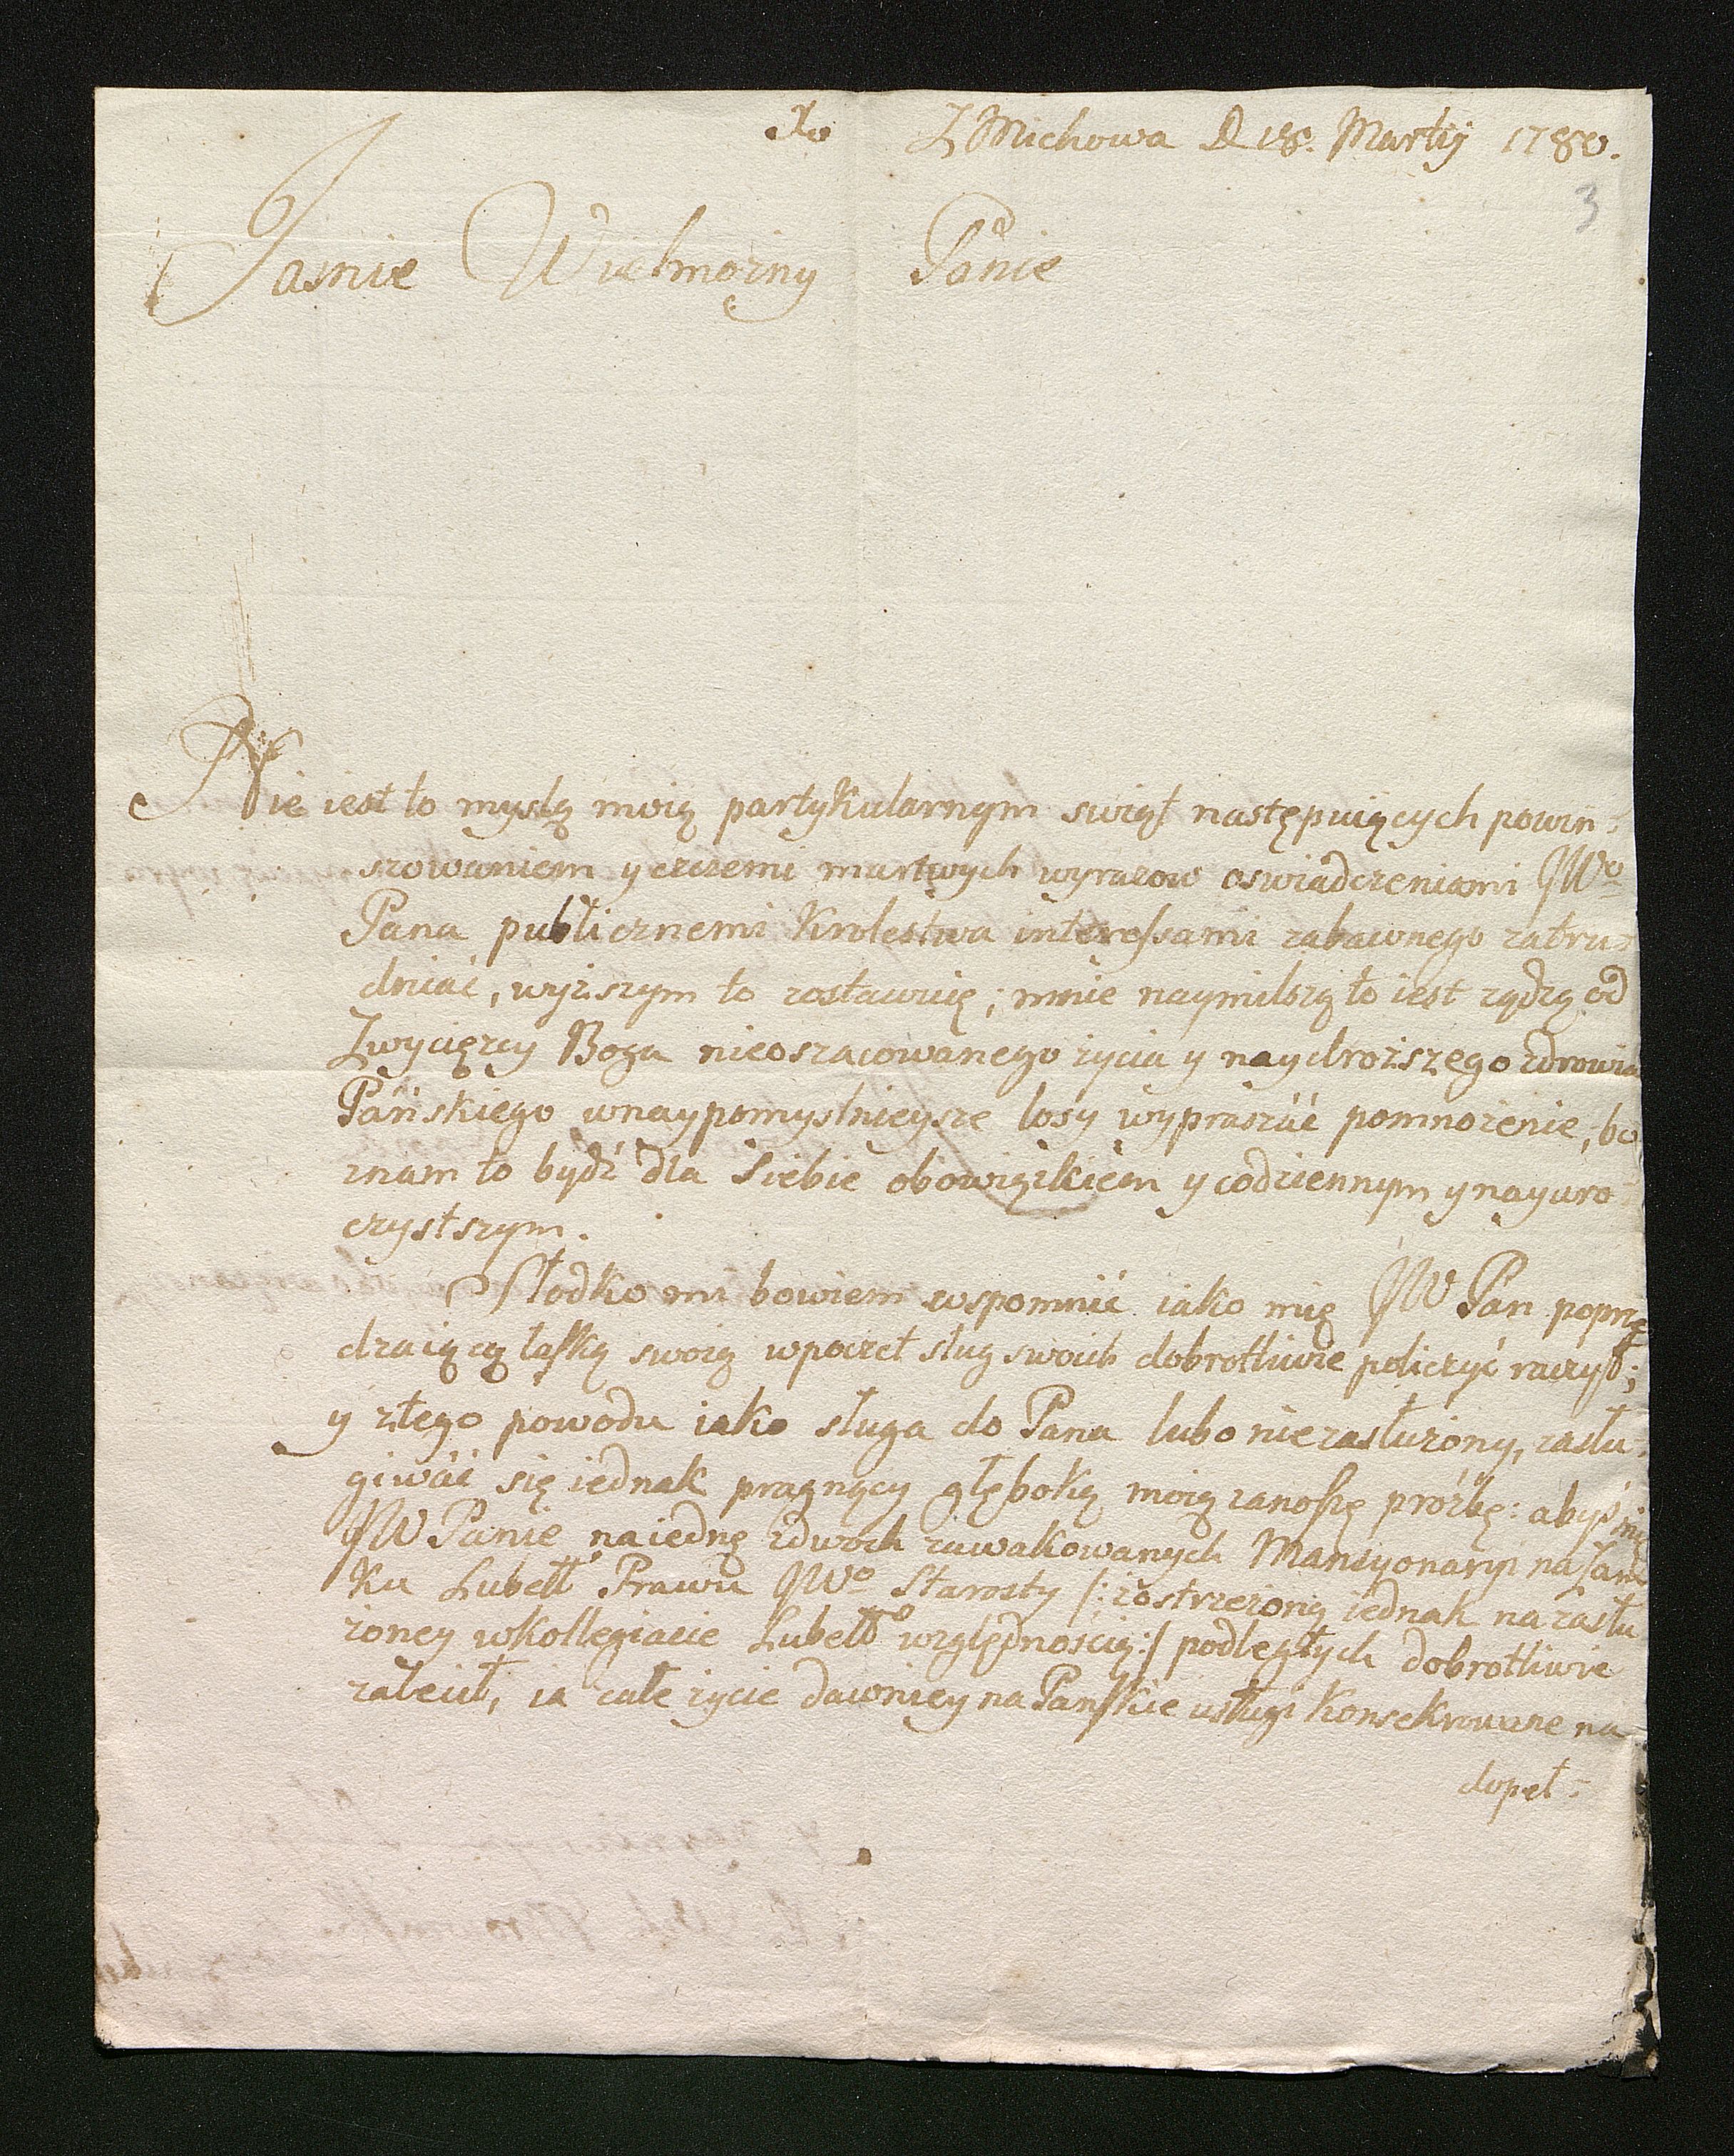 Z Michowa D 18. Martij 1780.
3
Jasnie Wielmożny Panie
Nie iest to myslą moią partykularnym swiąt następuiących powin-
szowaniem y czczemi martwych wyrazow oswiadczeniami JWo
Pana publicznemi Krolestwa interessami zabawnego zatru-
dniać, wyższym to zostawuię; mnie naymilszą to iest żądzą od
Zwycięzcy Boga nieoszacowanego życia y naydroższego zdrowia
Pańskiego w naypomyslnieysze losy wypraszać pomnożenie, bo
znam to bydź dla siebie obowiązkiem y codziennym y nayuro-
czystszym.
Słodko mi bowiem wspomnić iako mię JW Pan poprze
dzaiącą łaską swoią w poczet sług swoich dobrotliwie policzyć raczył;
y z tego powodu iako sługa do Pana lubo niezasłużony, zasłu-
giwać się iednak pragnący głęboką moią zanoszę prożbę: abyś mię
JW Panie na iednę z dwoch zawakowanych Mansyonaryi na Zam
ku Lubell Prawu JWo Starosty /: zostrzeżoną iednak na zasłu
żoney w kollegiacie Lubell względnoscią :/ podległych dobrotliwie
zalecił, ia całe życie dawniey na Panskie usługi konsekrowane na
dopeł-